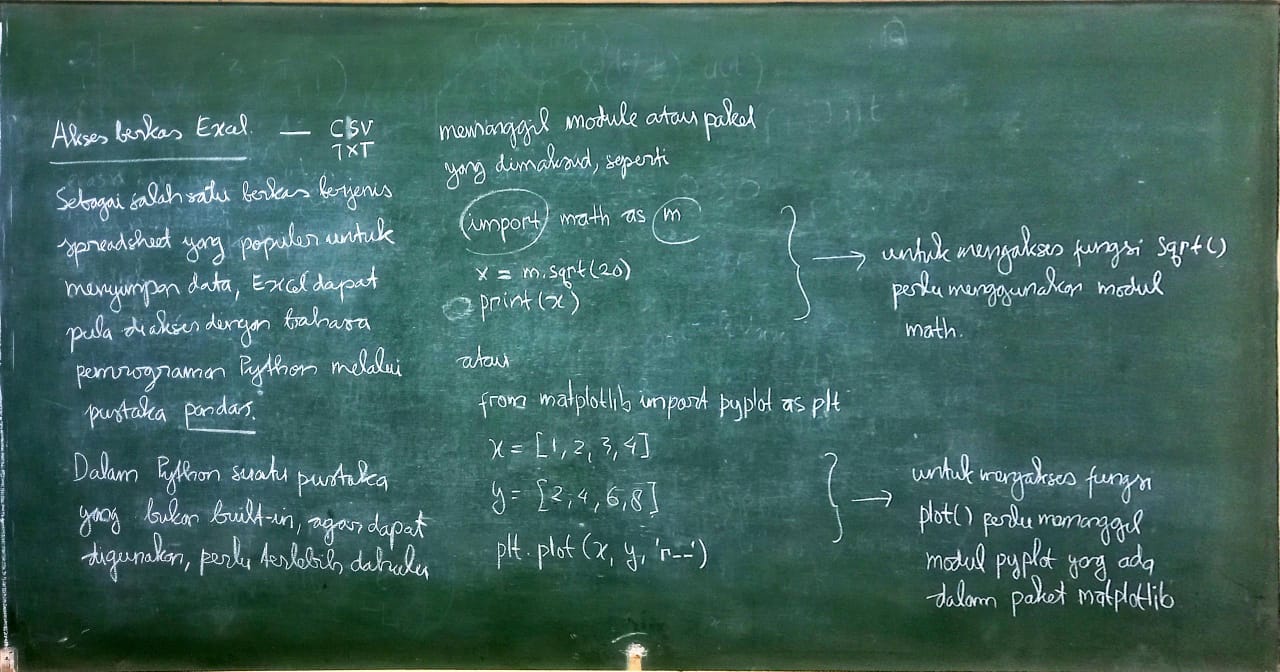 Akses berkas Excel. — CSV
TXT
Sebagai salah satu berkas berjenis
spreadsheet yang populer untuk
menyimpan data, Excel dapat
pula diakses dengan bahasa
pemrograman Python melalui
pustaka pandas.
Dalam Python suatu pustaka
yang bukan built-in, agar dapat
digunakan, perlu terlebih dahulu
memanggil module atau paket
yang dimaksud, seperti
import math as m
x = m.sqrt(20)
print(x)
atau
from matplotlib import pyplot as plt
x = [1, 2, 3, 4]
y = [2, 4, 6, 8]
plt.plot(x, y, 'r--')
→ untuk mengakses fungsi sqrt()
perlu menggunakan modul
math.
→ untuk mengakses fungsi
plot() perlu memanggil
modul pyplot yang ada
dalam paket matplotlib